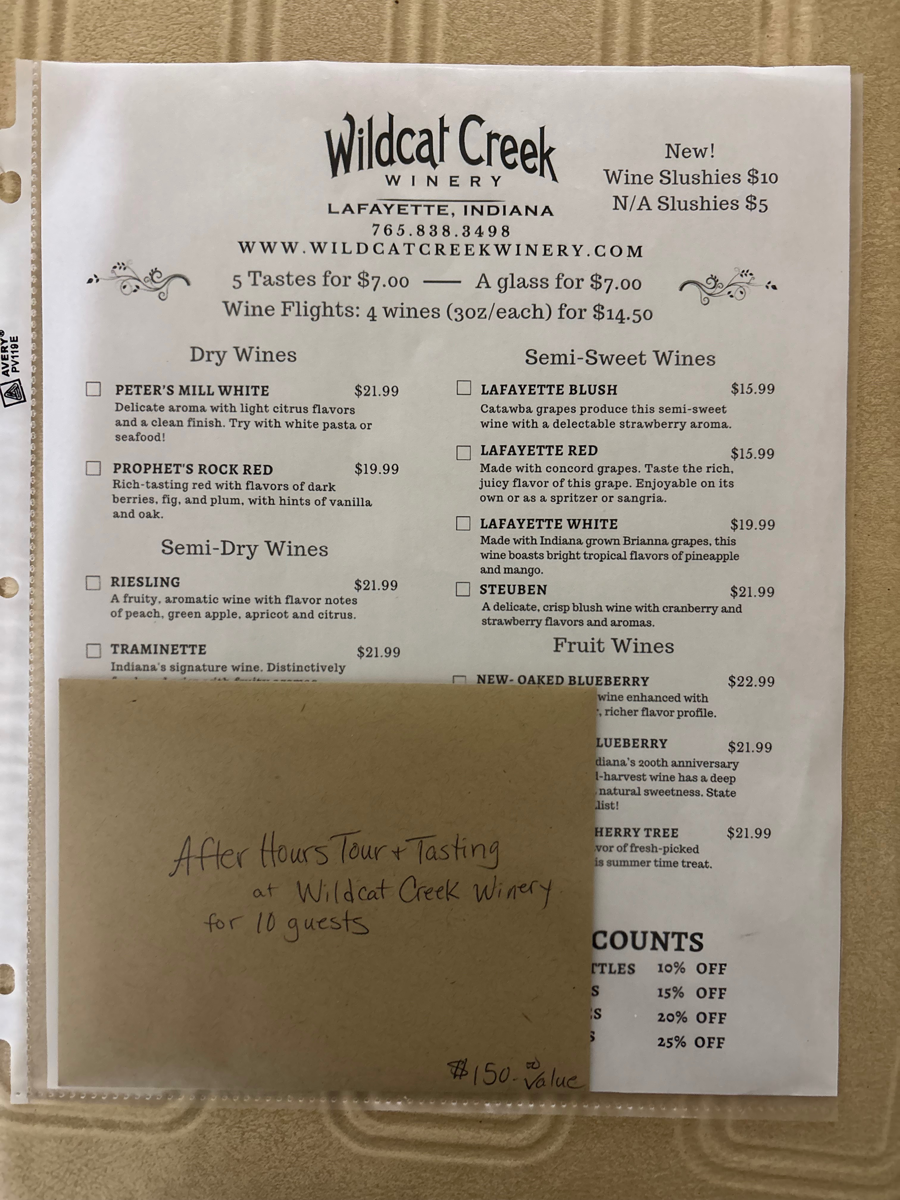 Wildcat Creek
WINERY
LAFAYETTE, INDIANA
765.838.3498
WWW.WILDCATCREEKWINERY.COM
New!
Wine Slushies $10
N/A Slushies $5
5 Tastes for $7.00 — A glass for $7.00
Wine Flights: 4 wines (3oz/each) for $14.50
Dry Wines
PETER'S MILL WHITE $21.99
Delicate aroma with light citrus flavors
and a clean finish. Try with white pasta or
seafood!
PROPHET'S ROCK RED $19.99
Rich-tasting red with flavors of dark
berries, fig, and plum, with hints of vanilla
and oak.
Semi-Dry Wines
RIESLING $21.99
A fruity, aromatic wine with flavor notes
of peach, green apple, apricot and citrus.
TRAMINETTE $21.99
Indiana's signature wine. Distinctively
Semi-Sweet Wines
LAFAYETTE BLUSH $15.99
Catawba grapes produce this semi-sweet
wine with a delectable strawberry aroma.
LAFAYETTE RED $15.99
Made with concord grapes. Taste the rich,
juicy flavor of this grape. Enjoyable on its
own or as a spritzer or sangria.
LAFAYETTE WHITE $19.99
Made with Indiana grown Brianna grapes, this
wine boasts bright tropical flavors of pineapple
and mango.
STEUBEN $21.99
A delicate, crisp blush wine with cranberry and
strawberry flavors and aromas.
Fruit Wines
NEW- OAKED BLUEBERRY $22.99
wine enhanced with
, richer flavor profile.
LUEBERRY $21.99
diana's 200th anniversary
l-harvest wine has a deep
natural sweetness. State
list!
HERRY TREE $21.99
vor of fresh-picked
is summer time treat.
COUNTS
TTLES 10% OFF
S 15% OFF
ES 20% OFF
S 25% OFF
After Hours Tour + Tasting
at Wildcat Creek Winery
for 10 guests
$150.00 Value
AVERY®
PV119E